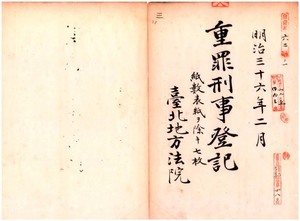 明治三十六年二月
重罪刑事登記
紙數表紙ヲ除キ七枚
臺北地方法院
三